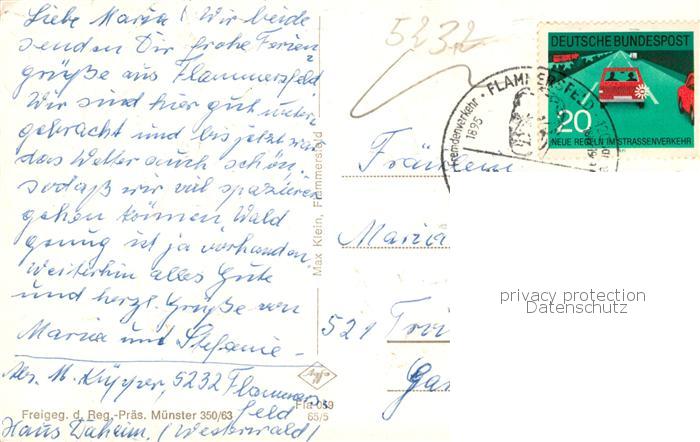 Liebe Maria! Wir beide
senden Dir frohe Ferien
grüße aus Flammersfeld
Wir sind hier gut unter
gebracht und bis jetzt war
das Wetter auch schön,
sodaß wir viel spazieren
gehen können Wald
genug ist ja vorhanden.
Weiterhin alles Gute
und herzl. Grüße von
Maria und Stefanie
Abs. M. Küpper, 5232 Flammers
feld
Haus Daheim, (Westerwald)
Freigeg. d. Reg.-Präs. Münster 350/63
Fla 039
65/5
Agfa
Max Klein, Flammersfeld
5232
DEUTSCHE BUNDESPOST
20
NEUE REGELN IM STRASSENVERKEHR
FLAMMERSFELD
Fremdenverkehr
1895
Fräulein
Maria
521 Troi
privacy protection
Datenschutz